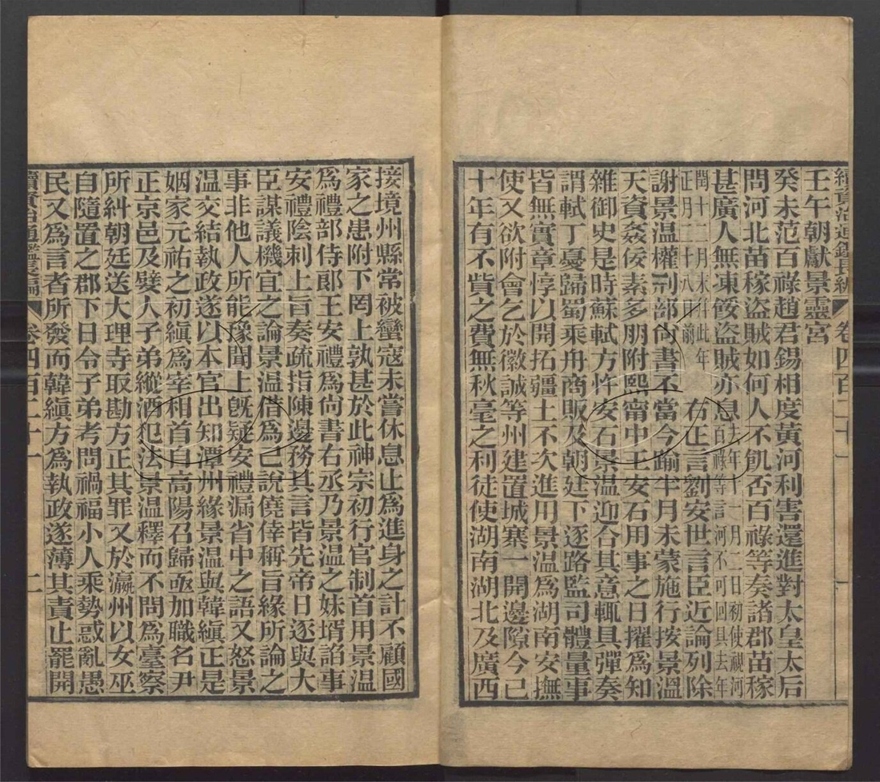 續資治通鑑長編 卷四百二十一
壬午朝獻景靈宮
癸未范百祿趙君錫相度黃河利害還進對太皇太后
問河北苗稼盜賊如何人不飢否百祿等奏諸郡苗稼
甚廣人無凍餒盜賊亦息去年十一月二日初使視河百祿等言河不可回具去年
閏十二月末幷此年正月二十八日前右正言劉安世言臣近論列除
謝景溫權刑部尙書不當今踰半月未蒙施行按景溫
天資姦佞素多朋附熙甯中王安石用事之日擢爲知
雜御史是時蘇軾方忤安石景溫迎合其意輒具彈奏
謂軾丁憂歸蜀乘舟商販及朝廷下逐路監司體量事
皆無實章惇以開拓疆土不次進用景溫爲湖南安撫
使又欲附會乞於徽誠等州建置城寨一開邊隙今已
十年有不貲之費無秋毫之利徒使湖南湖北及廣西
接境州縣常被蠻寇未嘗休息止爲進身之計不顧國
家之患附下罔上孰甚於此神宗初行官制首用景溫
爲禮部侍郞王安禮爲尙書右丞乃景溫之妹壻諂事
安禮陰刺上旨奏疏指陳邊務其言皆先帝日逐與大
臣謀議機宜之論景溫借爲己說僥倖稱旨緣所論之
事非他人所能豫聞上旣疑安禮漏省中之語又怒景
溫交結執政遂以本官出知潭州緣景溫與韓縝正是
姻家元祐之初縝爲宰相首自高陽召歸亟加職名尹
正京邑及嬖人子弟縱酒犯法景溫釋而不問爲臺察
所糾朝廷送大理寺取勘方正其罪又於瀛州以女巫
自隨置之郡下日令子弟考問禍福小人乘勢惑亂愚
民又爲言者所發而韓縝方爲執政遂薄其責止罷開
續資治通鑑長編 卷四百二十一 二